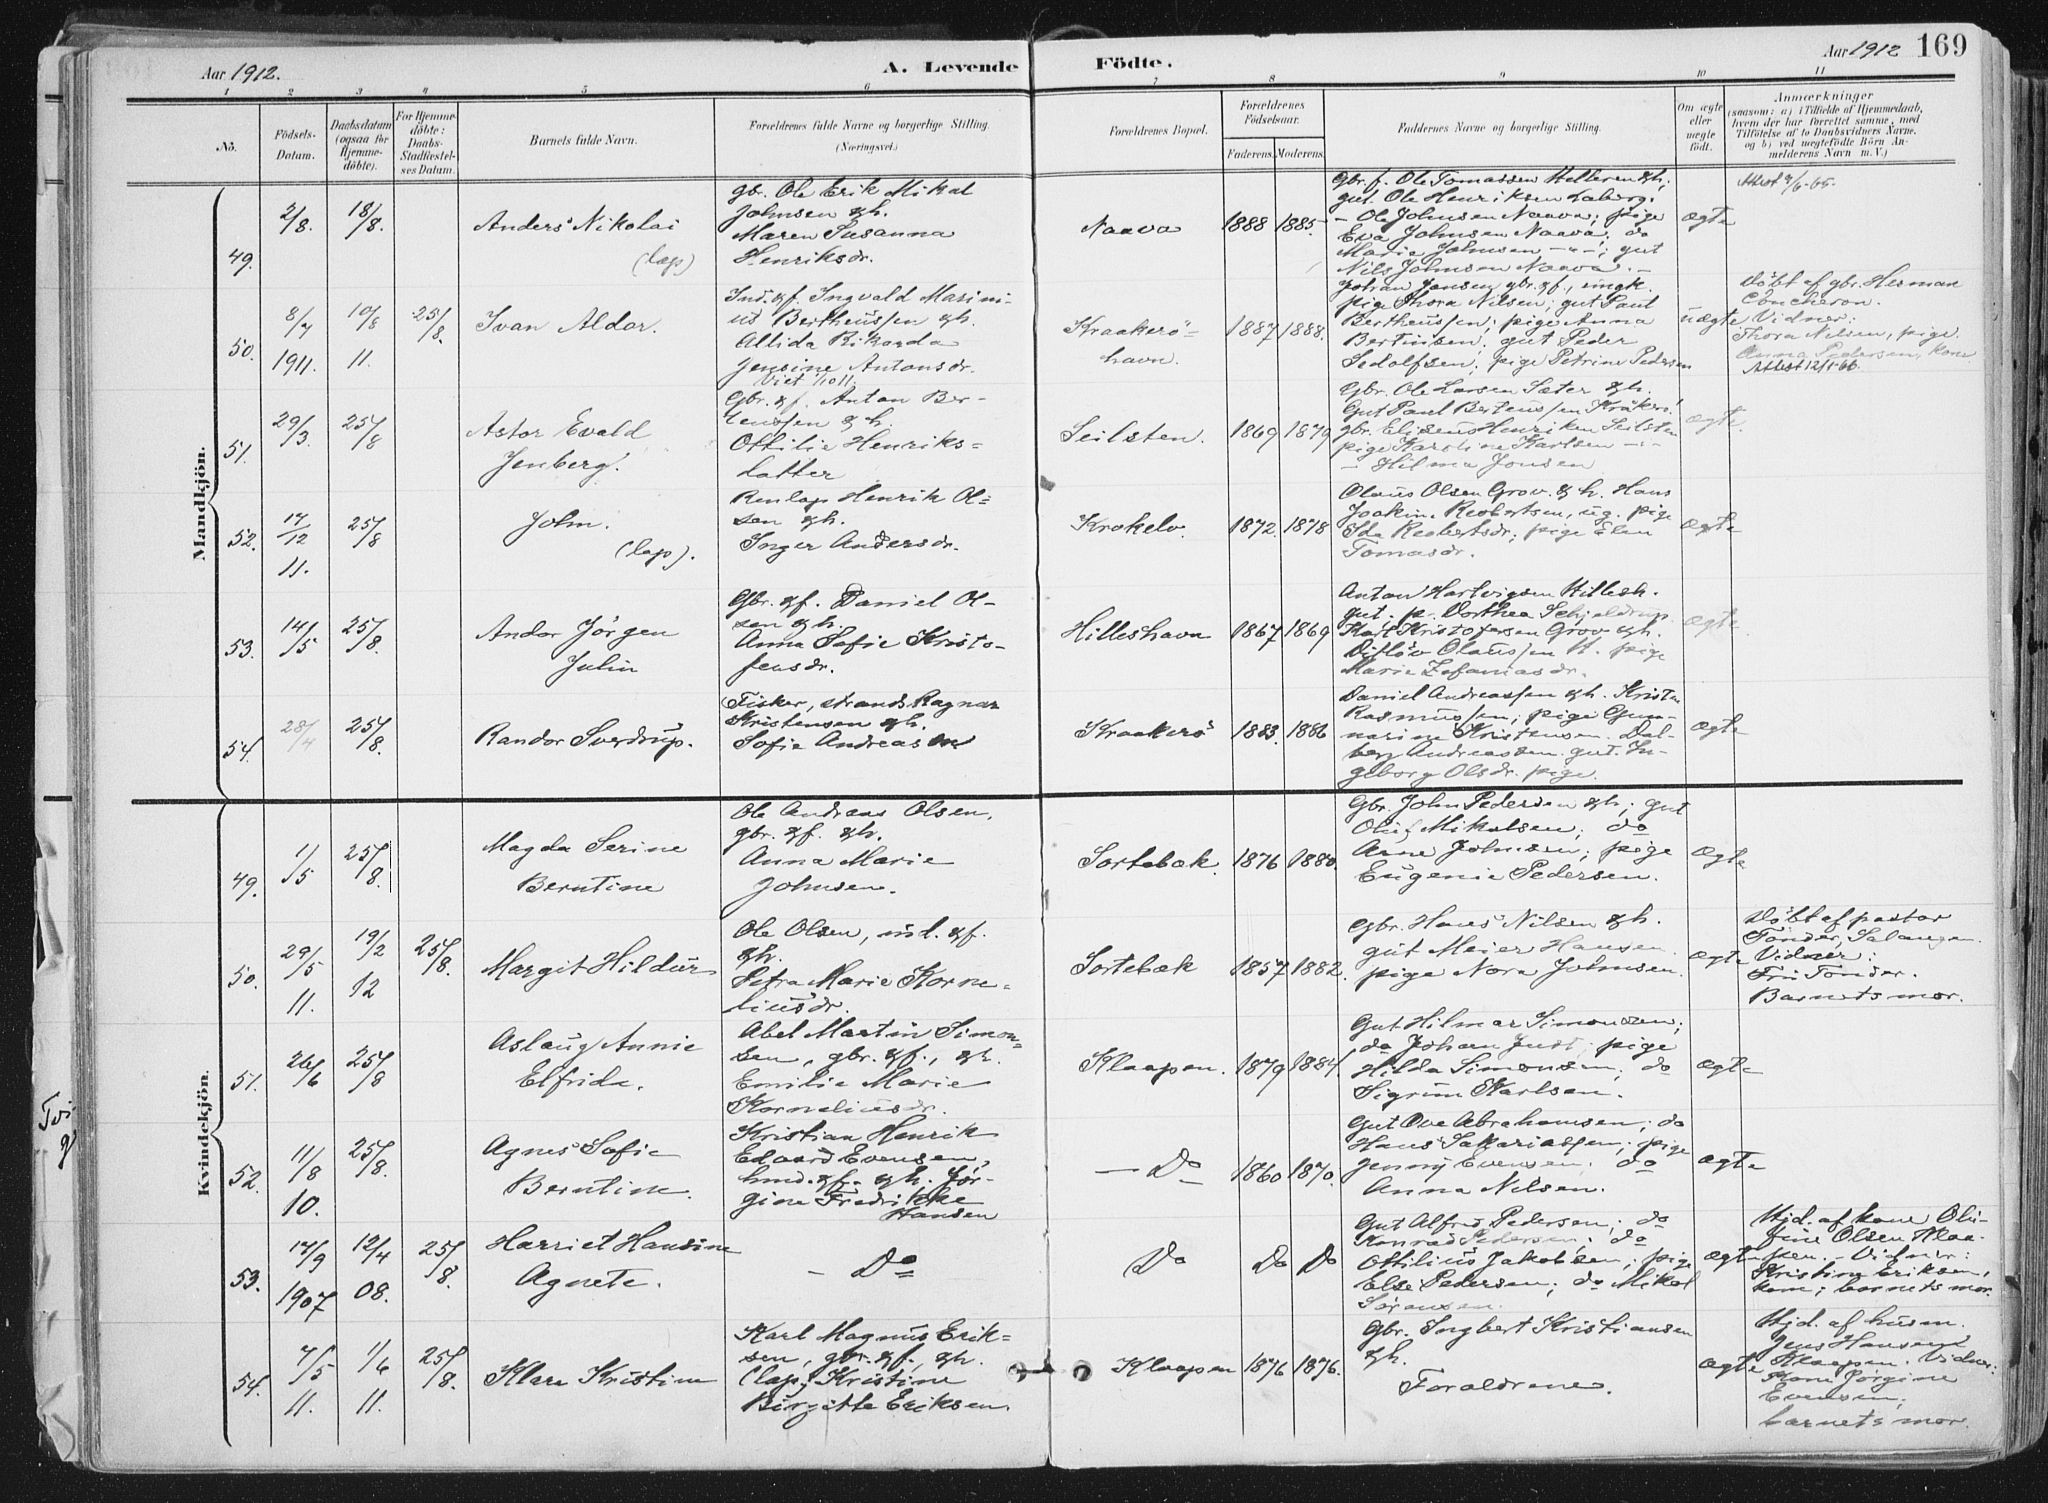 Aar 1912.
A. Levende Födte.
Aar 1912
169
1 2 3 4 5 6 7 8 9 10 11
No.
Födsels-
Datum.
Daabsdatum
(ogsaa for
Hjemme-
döbte).
For Hjemme-
döbte:
Daabs-
Stadfæstel-
ses Datum.
Barnets fulde Navn.
Forældrenes fulde Navne og borgerlige Stilling.
(Næringsvei.)
Forældrenes Bopæl.
Forældrenes
Födselsaar.
Faderens. Moderens.
Faddernes Navne og borgerlige Stilling.
Om ægte
eller
uægte
födt.
Anmærkninger
(saasom: a) i Tilfælde af Hjemmedaab,
hvem der har forrettet samme, med
Tilföielse af to Daabsvidners Navne.
og b) ved uægtefödte Börn An-
melderens Navn m. V.)
Mandkjön.
49.
2/8.
18/8.
Anders Nikolai
(lap)
gbr. Ole Erik Mikal
Johnsen &h.
Maren Susanna
Henriksdr.
Naava
1888 1885.
Gbr. f. Ole Tomassen &h;
gut. Ole Henriksen
- Ole Johnsen Naava; pige
Eva Johnsen Naava; do
Marie Johnsen -"-; gut
Nils Johnsen Naava.
ægte
Attest 9/6-65.
50.
8/7
1911.
10/8
11.
25/8
Ivan Aldor.
Ind. &f. Ingvald Marini-
us Bertheussen &h.
Allida Rikarda
Jensine Antonsdr.
Viet 1/10 11.
Kraakerö-
havn.
1887 1888.
Johan Jensen gbr. &f., ungk.
pige Thora Nilsen; gut Paul
Bertheussen; pige Anna
Bertinsen; gut Peder
Sedolfsen; pige Petrine Pedersen
uægte
Döbt af gbr. Herman
Concheron.
Vidner:
Thora Nilsen, pige.
Anna Pedersen, kone
Attest 12/1-66.
51.
29/3.
25/8
Astor Evald
Jenberg.
Gbr. &f. Anton Ber-
teussen &h
Ottilie Henriks-
datter
Seilsten.
1869 1879
Gbr. Ole Larsen Sæter &h.
Gut Paul Berteussen Kråkerö.
gbr. Eliseus Henriksen Seilsten
pige Karoline Karlsen -"-
- Hilma Jonsen
ægte.
52.
17/12
11.
25/8
John.
(lap).
Renlap Henrik Ol-
sen &h.
Inger Andersdr.
Krokelv.
1872. 1878
Olaus Olsen Grov. & h. Hans
Joakim. Reobertsen, ug. pige
Ida Reobertsdr; pige Elen
Tomasdr.
ægte
53.
14/5
25/8.
Andor Jørgen
Julin
Gbr. &f. Daniel Ol-
sen &h.
Anna Sofie Kristo-
fensdr.
Hilleshavn
1867 1869
Anton Hartvigsen Hillesh.
gut. p. Dorthea Schjeldrup
Karl Kristofersen Grov &h.
Ditlöv Olaussen H. pige
Marie Zefaniasdr.
ægte.
54.
28/4
25/8.
Randor Sverdrup.
Fisker, strands. Ragnar
Kristensen &h.
Sofie Andreasen
Kraakerö
1883. 1886
Daniel Andreassen &h. Kristen
Rasmussen; pige Gun-
narine Kristensen. Dal-
berg Andreassen. gut. In-
geborg Olsdr. pige.
ægte
Kvindekjön.
49.
1/5
25/8.
Magda Serine
Berntine
Ole Andreas Olsen,
gbr. &f. &h.
Anna Marie
Johnsen.
Sortebæk.
1876 1880.
Gbr. John Pedersen &h; gut
Oluf Mikalsen; do
Arne Johnsen; pige
Eugenie Pedersen.
ægte
50.
29/5
11.
19/2
12
25/8.
Margit Hildur
Ole Olsen, ind. &f.
&h.
Petra Marie Korne-
liusdr.
Sortebæk
1857 1882.
Gbr. Hans Nilsen &h.
gut Meier Hansen
pige Nora Johnsen.
ægte
Döbt af pastor
Tönder, Salangen.
Vidner:
Fru Tönder.
Barnets mor.
51.
26/6
25/8
Aslaug Annie
Elfrida.
Abel Martin Simon-
sen, gbr. &f., &h.
Emilie Marie
Korneliusdr.
Klaapen.
1879 1884.
Gut Hilmar Simonsen;
do Johan Juul; pige
Hilda Simonsen; do
Sigrun Karlsen.
ægte
52.
11/8
10.
25/8.
Agnes Sofie
Berntine.
Kristian Henrik
Edvard Evensen,
hmd. &f. &h. Jør-
gine Fredrikke
Hansen
- Do -
1860 1870.
Gut Ove Abrahamsen; do
Hans Sakariassen; pige
Jenny Evensen. do
Anna Nilsen.
ægte
53.
17/9
1907
12/4
08.
25/8.
Harriet Hansine
Agnete.
- Do
Do
Do Do
Gut Alfred Pedersen; do
Konrad Pedersen; do
Ottilius Jakobsen; pige
Else Pedersen; do Mikal
Sørensen.
ægte
Hjd. af kone Olu-
fine Olsen Klaa-
pen. - Vidner:
Kristine Eriksen,
kone; barnets mor.
54.
7/5
11.
1/6
11.
25/8.
Klara Kristine
Karl Magnus Erik-
sen, gbr. &f., &h.
(lap) Kristine
Birgitte Eriksen.
Klaapen
1876 1876.
Gbr. Ingbert Kristiansen
&h.
Forældrene.
ægte
Hjd. af husm.
Jens Hansen
Klaapen. Vidner:
Kone Jörgine
Evensen,
barnets mor.